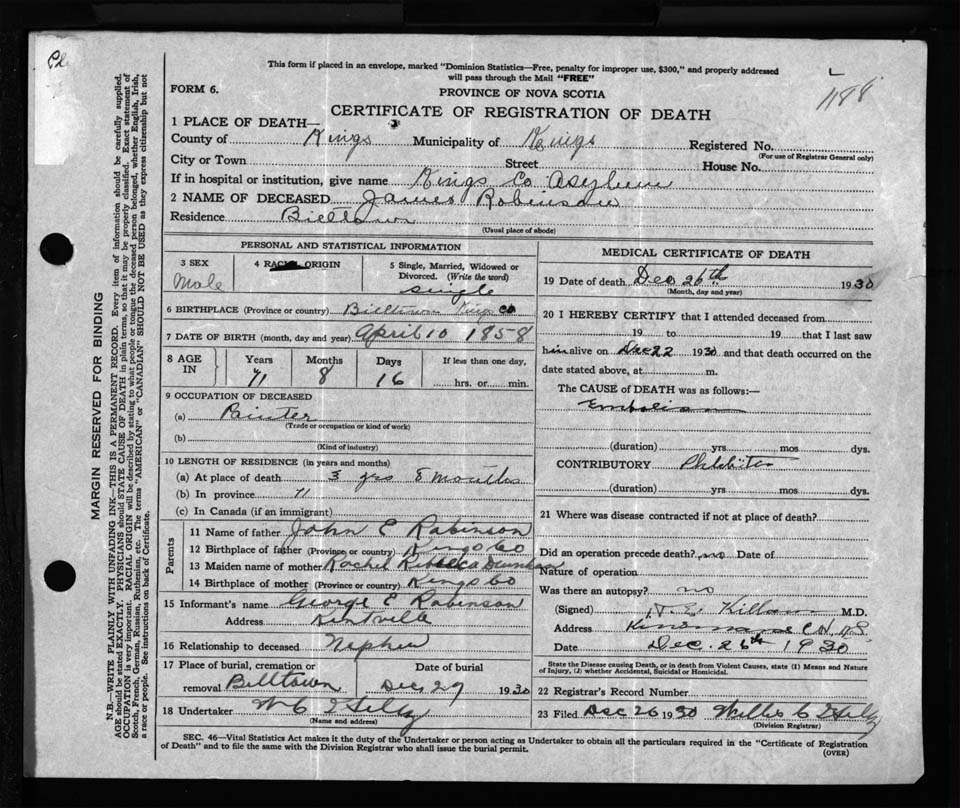 This form if placed in an envelope, marked "Dominion Statistics—Free, penalty for improper use, $300," and properly addressed
will pass through the Mail "FREE"
1188
FORM 6.
PROVINCE OF NOVA SCOTIA
CERTIFICATE OF REGISTRATION OF DEATH
1 PLACE OF DEATH—
County of Kings Municipality of Kings Registered No.
(For use of Registrar General only)
City or Town Street House No.
If in hospital or institution, give name Kings Co Asylum
2 NAME OF DECEASED James Robinson
Residence Billtown
(Usual place of abode)
PERSONAL AND STATISTICAL INFORMATION
3 SEX
Male
4 RACIAL ORIGIN
5 Single, Married, Widowed or
Divorced. (Write the word)
single
6 BIRTHPLACE (Province or country) Billtown Kings Co
7 DATE OF BIRTH (month, day and year) April 10 1858
8 AGE IN
Years Months Days If less than one day,
71 8 16 hrs. or min.
9 OCCUPATION OF DECEASED
(a) Painter
(Trade or occupation or kind of work)
(b)
(Kind of industry)
10 LENGTH OF RESIDENCE (in years and months)
(a) At place of death 3 yrs 8 months
(b) In province 71
(c) In Canada (if an immigrant)
Parents
11 Name of father John E Robinson
12 Birthplace of father (Province or country) Kings Co
13 Maiden name of mother Rachel Rebecca
14 Birthplace of mother (Province or country) Kings Co
15 Informant's name George E Robinson
Address Kentville
16 Relationship to deceased Nephew
17 Place of burial, cremation or Date of burial
removal Billtown Dec 29 1930
18 Undertaker W C
(Name and address)
MEDICAL CERTIFICATE OF DEATH
19 Date of death Dec 26th 1930
(Month, day and year)
20 I HEREBY CERTIFY that I attended deceased from
19 to 19 that I last saw
him alive on Dec 22 1930 and that death occurred on the
date stated above, at m.
The CAUSE of DEATH was as follows:—
Embolism
(duration) yrs mos dys.
CONTRIBUTORY Phlebitis
(duration) yrs mos dys.
21 Where was disease contracted if not at place of death?
Did an operation precede death? no Date of
Nature of operation
Was there an autopsy? no
(Signed) M.D.
Address N.S.
Date Dec. 26th 1930
State the Disease causing Death, or in death from Violent Causes, state (1) Means and Nature
of Injury, (2) whether Accidental, Suicidal or Homicidal.
22 Registrar's Record Number
23 Filed Dec 26 1930 Willis C
(Division Registrar)
SEC. 46—Vital Statistics Act makes it the duty of the Undertaker or person acting as Undertaker to obtain all the particulars required in the "Certificate of Registration
of Death" and to file the same with the Division Registrar who shall issue the burial permit.
(OVER)
MARGIN RESERVED FOR BINDING
N.B.—WRITE PLAINLY WITH UNFADING INK—THIS IS A PERMANENT RECORD. Every item of information should be carefully supplied.
AGE should be stated EXACTLY. PHYSICIANS should STATE CAUSE OF DEATH in plain terms, so that it may be properly classified. Exact statement of
OCCUPATION is very important. RACIAL ORIGIN will be described by stating to what people or tongue the deceased person belonged, whether English, Irish,
Scotch, French, German, Russian, Ruthenian, etc. The terms "AMERICAN" or "CANADIAN" SHOULD NOT BE USED as they express citizenship but not
a race or people. See instructions on back of Certificate.